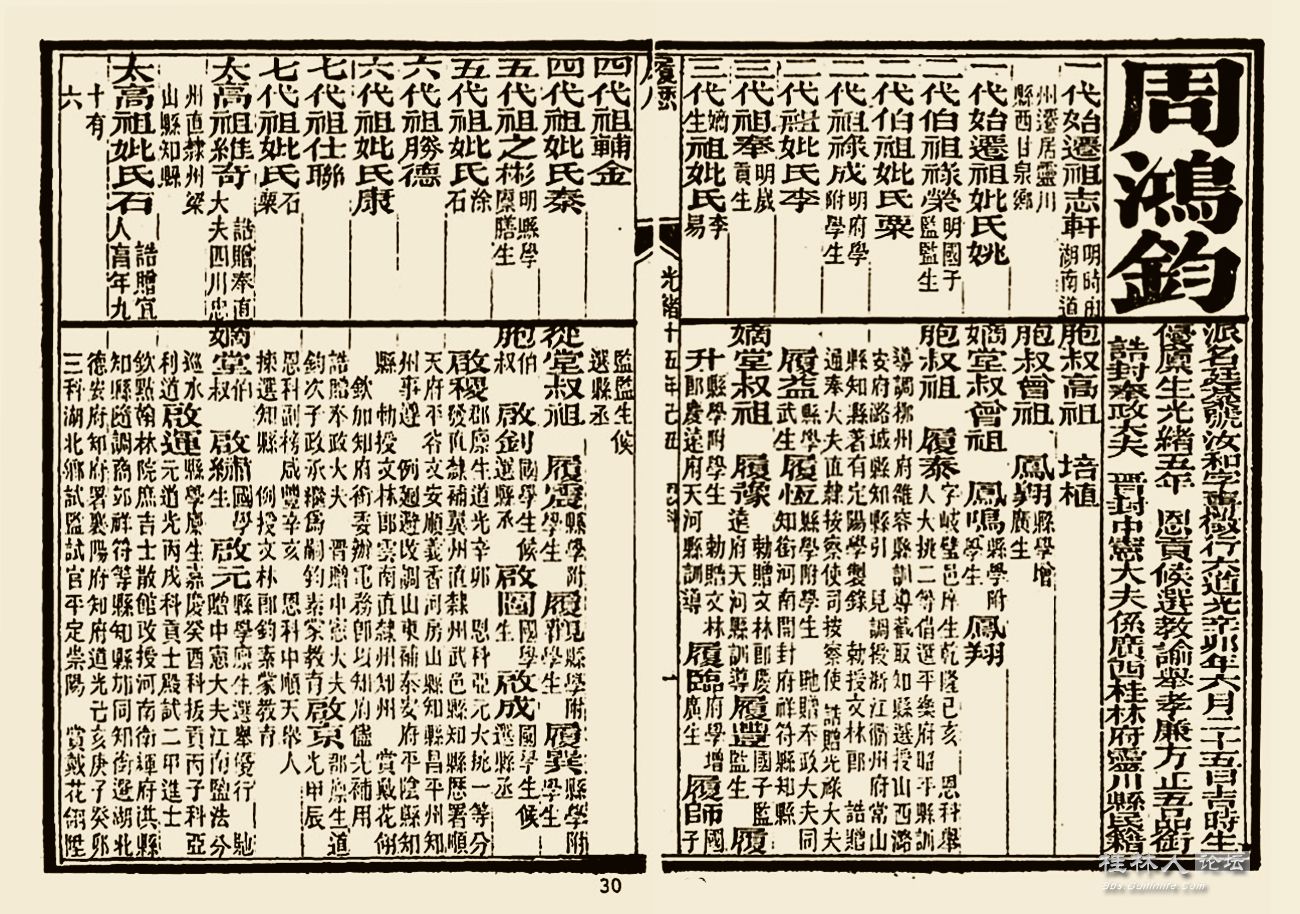 周鴻鈞
派名廷 號汝和字 行六道光辛卯年六月二十五日吉時生
優廩生光緒五年 恩貢候選教諭舉孝廉方正五品銜
誥封奉政大夫 晋封中憲大夫係廣西桂林府靈川縣民籍
一代始遷祖志軒明時由湖南道
州遷居靈川縣西甘泉鄉
一代始遷祖妣氏姚
二代伯祖祿榮明國子監監生
二代伯祖妣氏粟
二代祖祿成明府學附學生
二代祖妣氏李
三代祖奉明歲貢生
三代嫡生祖妣氏李易
胞叔高祖 培植
胞叔曾祖 鳳翔縣學增廣生
嫡堂叔曾祖 鳳鳴縣學附學生 鳳翔
胞叔祖 履泰字岐 邑庠生乾隆己亥 恩科舉人大挑二等借選平樂府昭平縣訓
導調柳州府雒容縣訓導截取知縣選授山西潞
安府潞城縣知縣引 見調授浙江衢州府常山
縣知縣著有定陽學製錄 勅授文林郎 誥贈
通奉大夫直隸按察使司按察使 誥贈光祿大夫
履益縣學武生 履恆縣學附學生 馳贈奉政大夫同知銜河南開封府祥符縣知縣
嫡堂叔祖 履豫 勅贈文林郎慶遠府天河縣訓導 履豐國子監監生 履
升縣學附學生 勅贈文林郎慶遠府天河縣訓導 履臨府學增廣生 履師國子
履歷
光緒十五年己丑 科
一
四代祖輔金
四代祖妣氏秦
五代祖之彬明縣學廩膳生
五代祖妣氏徐石
六代祖勝德
六代祖妣氏康
七代祖仕聯
七代祖妣氏石粟
太高祖維奇 誥贈奉直大夫四川忠
州直隸州梁山縣知縣
太高祖妣氏石 誥贈宜人享年九
十有六
監監生候選縣丞
從堂叔祖 履震縣學附學生 履 縣學附學生 履巽縣學附學生
胞伯叔 啟釗國學生候選縣丞 啟圖國學生 啟成國學生候選縣丞
啟稷郡廩生道光辛卯 恩科亞元大挑一等分發直隸補冀州直隸州武邑縣知縣歷署順
天府平谷文安順義香河房山縣知縣昌平州知
州事遵 例迴避改調山東補泰安府平陰縣知
縣 勅授文林郎雲南直隸州知州 賞戴花翎
欽加知府銜委辦電務 知府儘先補用
誥贈奉政大夫 晋贈中憲大夫 啟京郡廩生道光甲辰
恩科副榜咸豐辛亥 恩科中順天舉人
揀選知縣 例授文林郎鈞素蒙教育
嫡堂伯叔 啟肅國學生 啟元縣學廩生選舉優行 馳贈中憲大夫江南鹽法分
巡水利道 啟運縣學廩生嘉慶癸酉科拔貢丙子科亞元道光丙戌科貢士殿試二甲進士
欽點翰林院庶吉士散館改授河南衛輝府淇縣
知縣隨調商邱祥符等縣知縣加同知銜選湖北
德安府知府署襄陽府知府道光己亥庚子癸卯
三科湖北鄉試監試官平定崇陽 賞戴花翎陞
30
桂林人 论坛